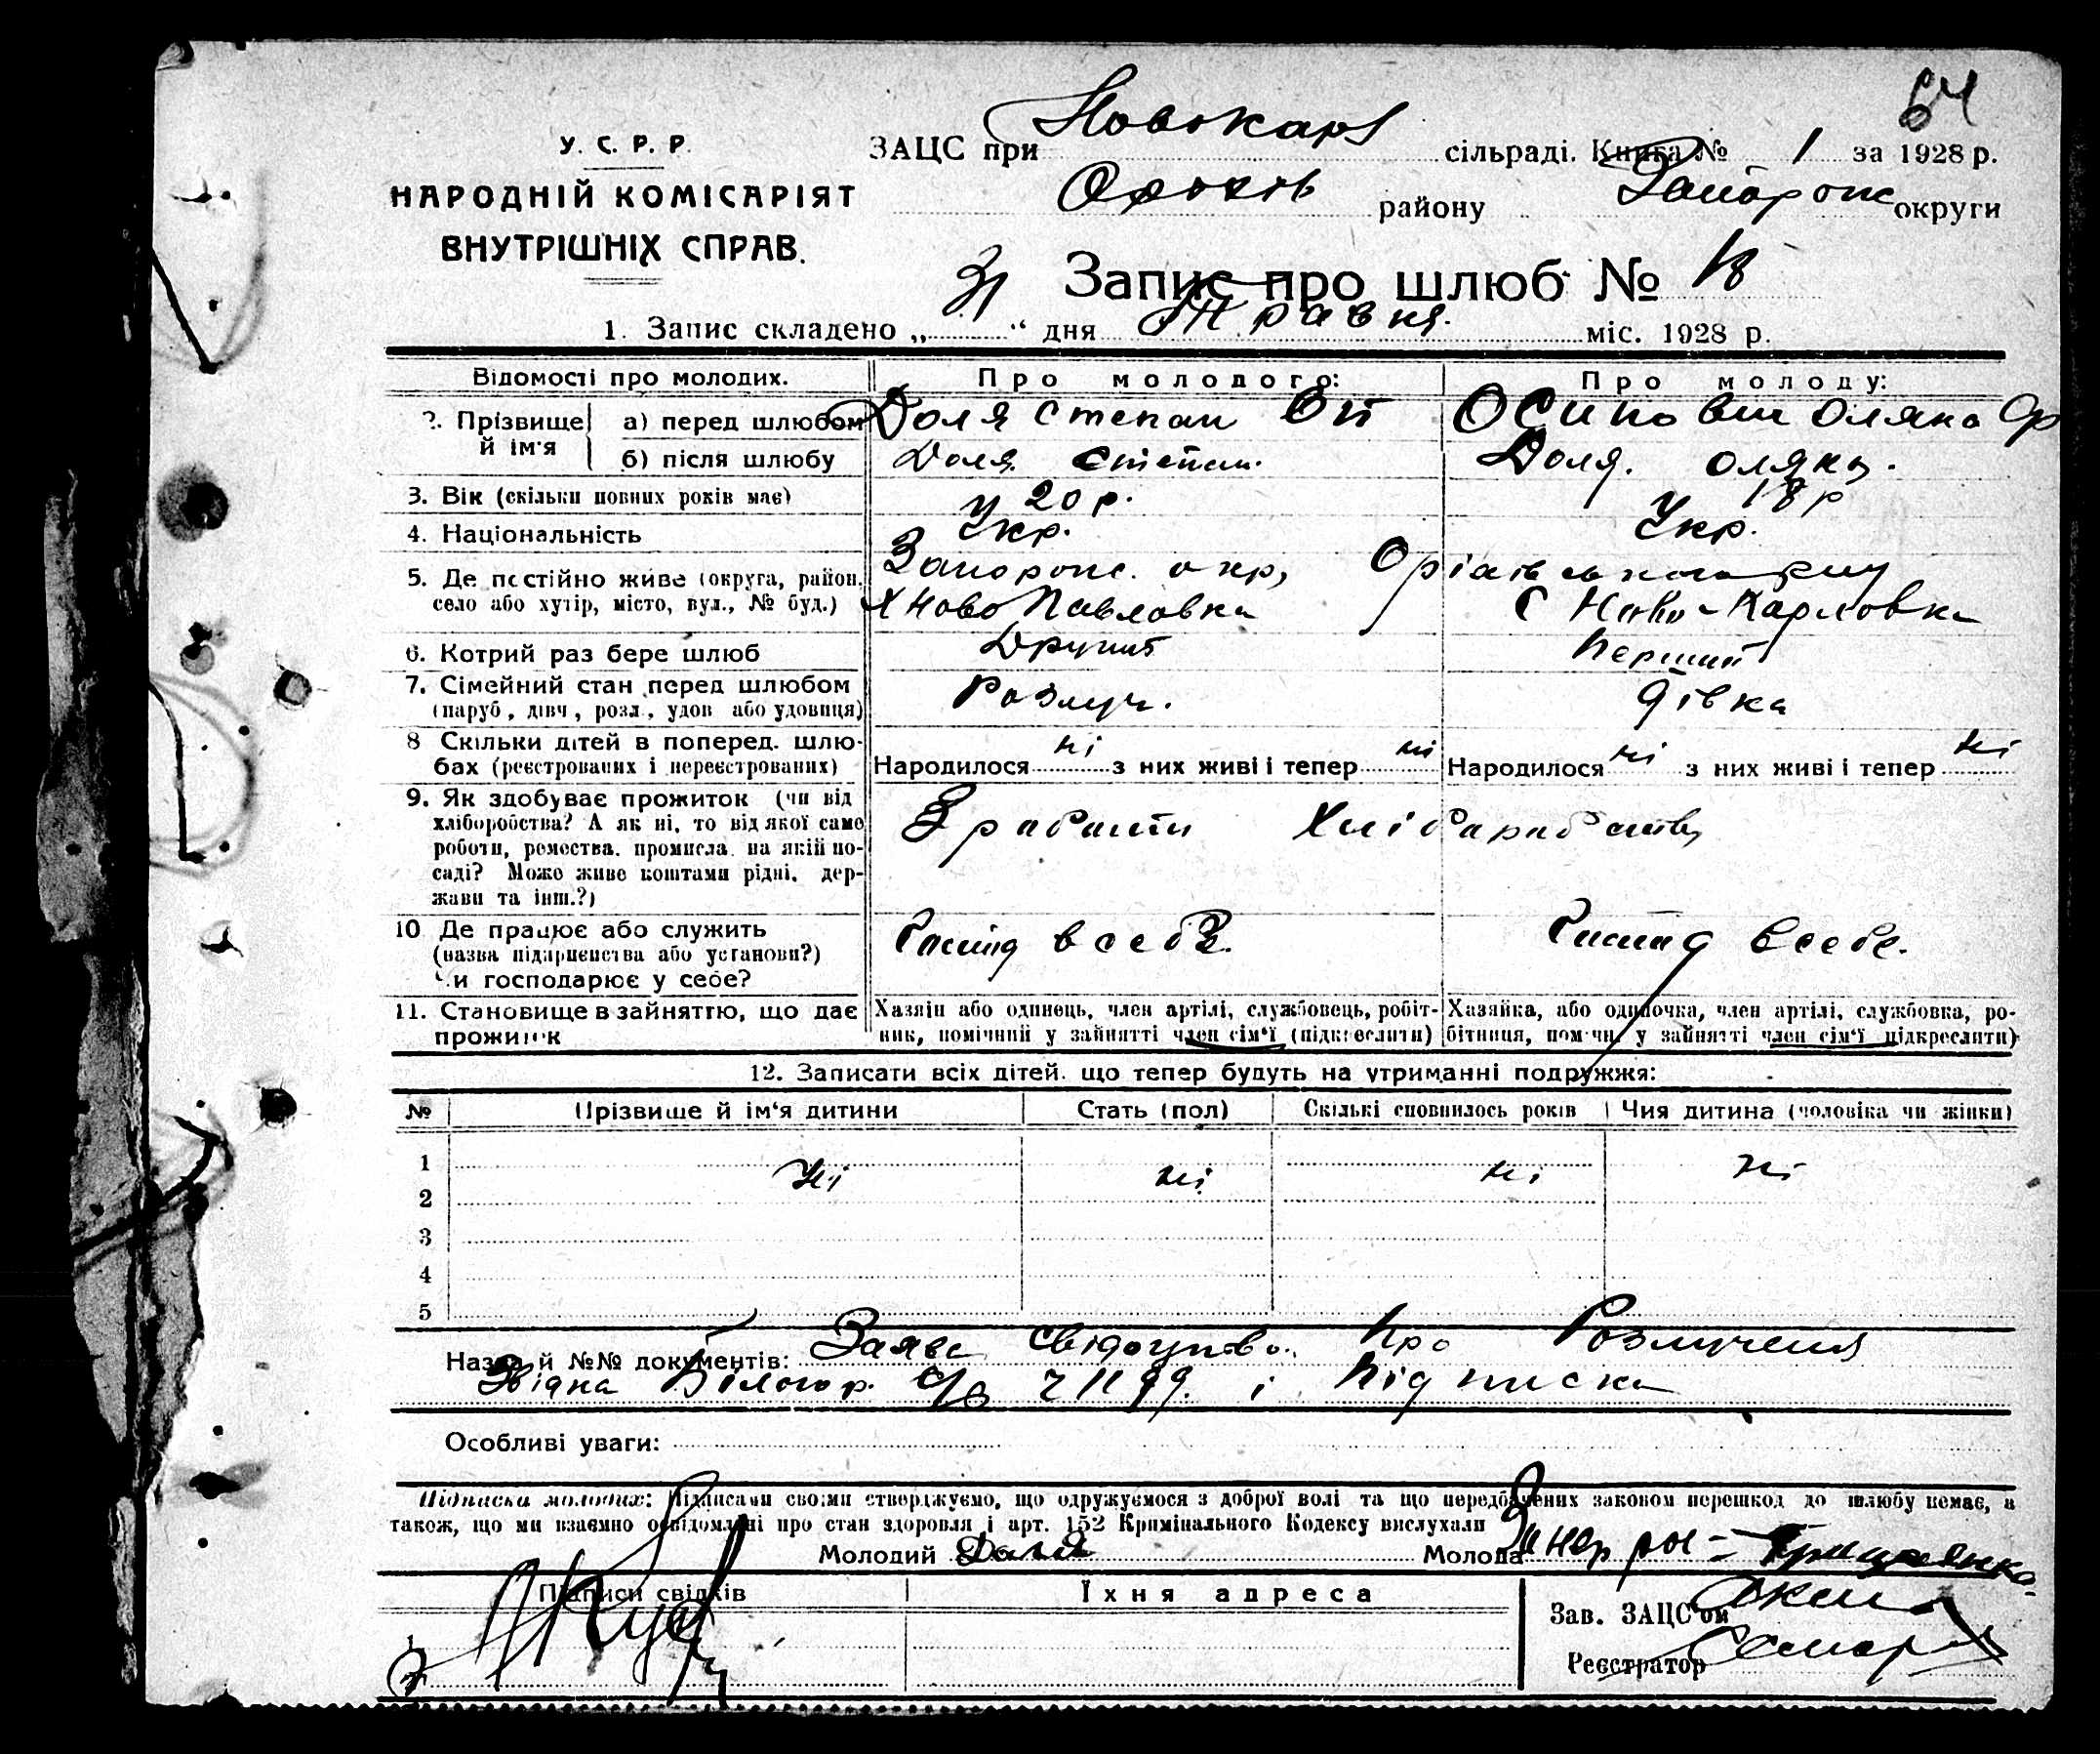 64
У. С. Р. Р.
НАРОДНІЙ КОМІСАРІЯТ
ВНУТРІШНІХ СПРАВ.
ЗАЦС при Новокарл сільраді. Книга № 1 за 1928 р.
Оріхів району Запорож округи
Запис про шлюб № 18
1. Запис складено „31“ дня Травня міс. 1928 р.
Відомості про молодих. Про молодого: Про молоду:
2. Прізвище й ім'я а) перед шлюбом Доля Степан Осипо Оляна
б) після шлюбу Доля Степан. Доля. Оляна.
3. Вік (скільки повних років має) 20 р. 18 р
4. Національність Укр. Укр.
5. Де постійно живе (округа, район, Запорож. окр,
село або хутір, місто, вул., № буд.) х Ново Павловка С Ново-Карловка
6. Котрий раз бере шлюб Другий Перший
7. Сімейний стан перед шлюбом Розлуч. дівка
(паруб., дівч., розл., удов або удовиця)
8 Скільки дітей в поперед. шлю-
бах (реєстрованих і нереєстрованих) Народилося ні з них живі і тепер ні Народилося ні з них живі і тепер ні
9. Як здобуває прожиток (чи від
хліборобства? А як ні, то від якої саме
роботи, ремества, промисла, на якій по-
саді? Може живе коштами рідні, дер-
жави та інш.?)
10 Де працює або служить
(назва підприємства або установи?) в себе. в себе.
Чи господарює у себе?
11. Становище в зайняттю, що дає Хазяїн або одинець, член артілі, службовець, робіт- Хазяйка, або одиночка, член артілі, службовка, ро-
прожиток ник, помічний у зайнятті член сім'ї (підкреслити) бітниця, помічн. у зайнятті член сім'ї підкреслити)
12. Записати всіх дітей, що тепер будуть на утриманні подружжя:
№ Прізвище й ім'я дитини Стать (пол) Скількі сповнилось років Чия дитина (чоловіка чи жінки)
1 ні ні ні ні
2
3
4
5
Назва й №№ документів: Заява Про Розлучення
і Підписка
Особливі уваги:
Підписка молодих: Підписами своїми стверджуємо, що одружуємося з доброї волі та що передбачених законом перешкод до шлюбу немає, а
також, що ми взаємно освідомлені про стан здоровля і арт. 152 Кримінального Кодексу вислухали
Молодий Доля Молода
Підписи свідків Їхня адреса
Зав. ЗАЦС'ом
Реєстратор